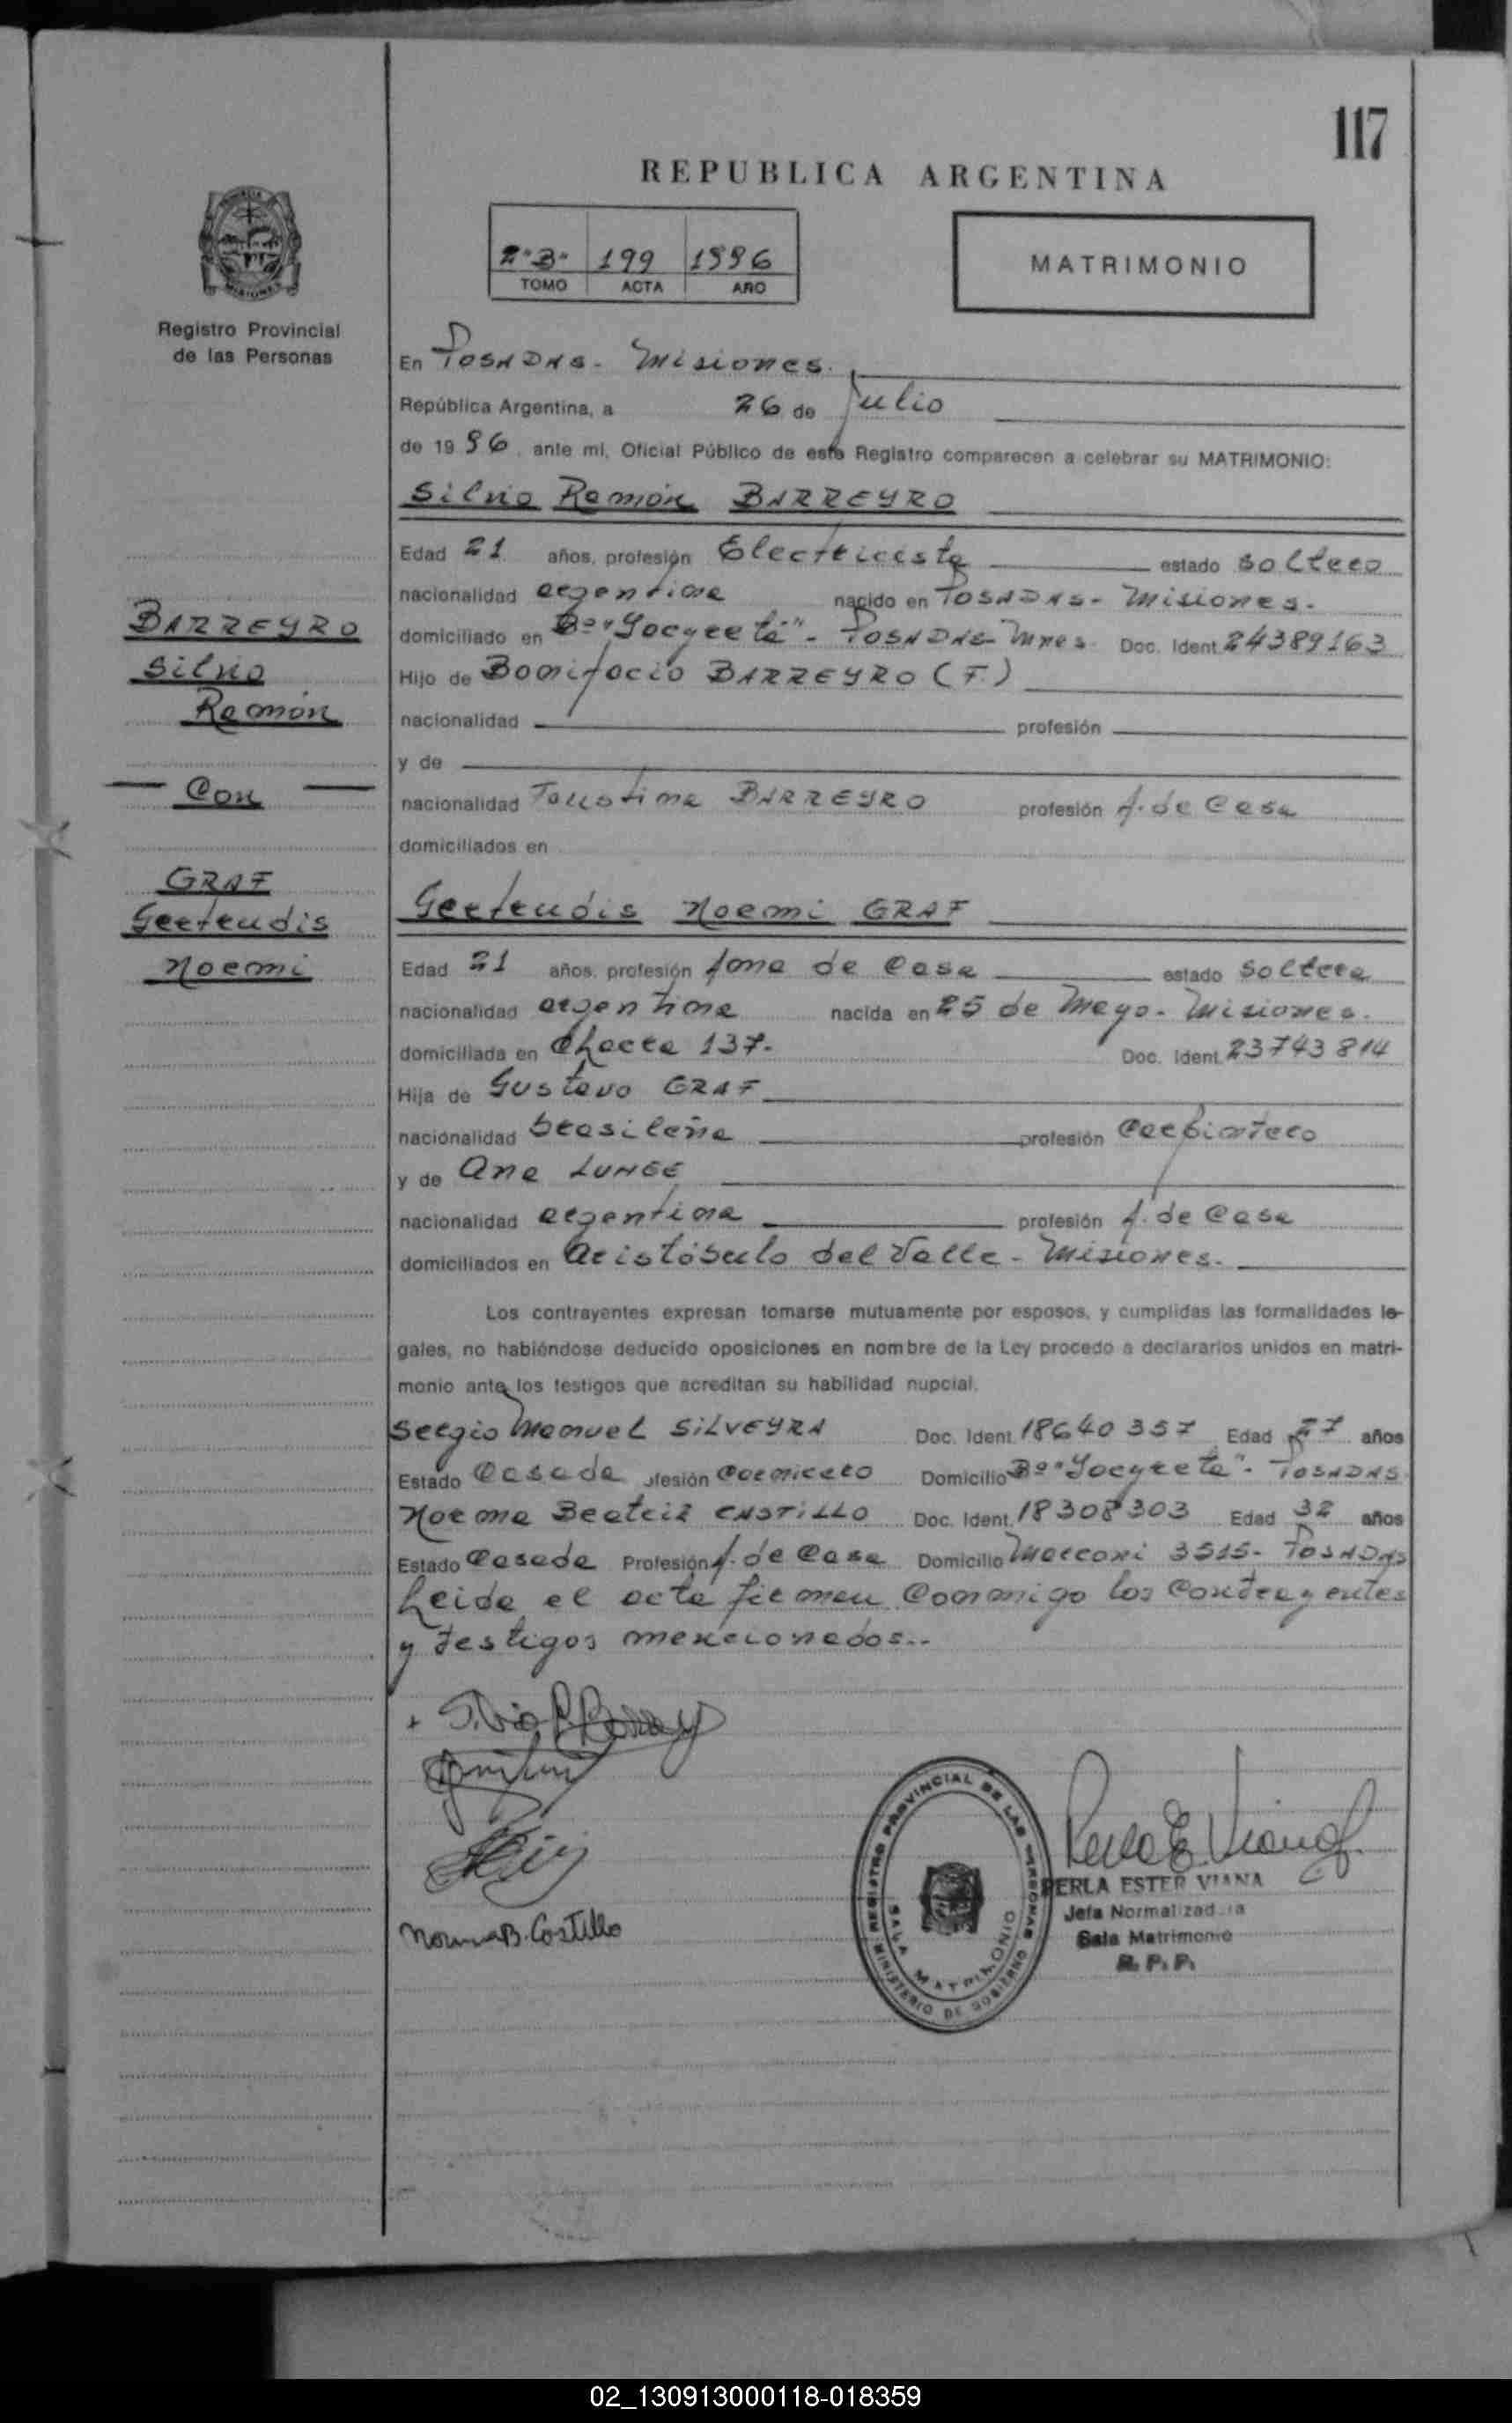 117
REPUBLICA ARGENTINA
2"B" 199 1996
TOMO ACTA AÑO
MATRIMONIO
Registro Provincial
de las Personas
En POSADAS - Misiones.
República Argentina, a 26 de Julio
de 1996, ante mi, Oficial Público de este Registro comparecen a celebrar su MATRIMONIO:
Silvio Ramón BARREYRO
Edad 21 años, profesión Electricista estado soltero
nacionalidad argentina nacido en POSADAS - Misiones.
domiciliado en Bº "Yacyretá" - POSADAS - Mnes. Doc. Ident. 24389163
Hijo de Bonifacio BARREYRO (F.)
nacionalidad profesión
y de
nacionalidad Faustina BARREYRO profesión A. de Casa
domiciliados en
BARREYRO
Silvio
Ramón
Con
GRAF
Gertrudis
Noemi
Gertrudis Noemi GRAF
Edad 21 años, profesión Ama de Casa estado soltera
nacionalidad argentina nacida en 25 de Mayo - Misiones.
domiciliada en Chacra 137. Doc. Ident. 23743814
Hija de Gustavo GRAF
nacionalidad brasileña profesión Carpintero
y de Ana LUNGE
nacionalidad argentina profesión A. de Casa
domiciliados en Aristóbulo del Valle - Misiones.
Los contrayentes expresan tomarse mutuamente por esposos, y cumplidas las formalidades le-
gales, no habiéndose deducido oposiciones en nombre de la Ley procedo a declararlos unidos en matri-
monio ante los testigos que acreditan su habilidad nupcial.
Sergio Manuel SILVEYRA Doc. Ident. 18640357 Edad 27 años
Estado Casado ofesión Carnicero Domicilio Bº "Yacyretá" - POSADAS
Norma Beatriz CASTILLO Doc. Ident. 18308303 Edad 32 años
Estado Casada Profesión A. de Casa Domicilio Marconi 3515 - POSADAS
Leida el acta firman conmigo los contrayentes
y testigos mencionados..
Norma B. Castillo
REGISTRO PROVINCIAL DE LAS PERSONAS
MINISTERIO DE GOBIERNO
SALA MATRIMONIO
PERLA ESTER VIANA
Jefa Normalizadora
Sala Matrimonio
R. P. P.
02_130913000118-018359